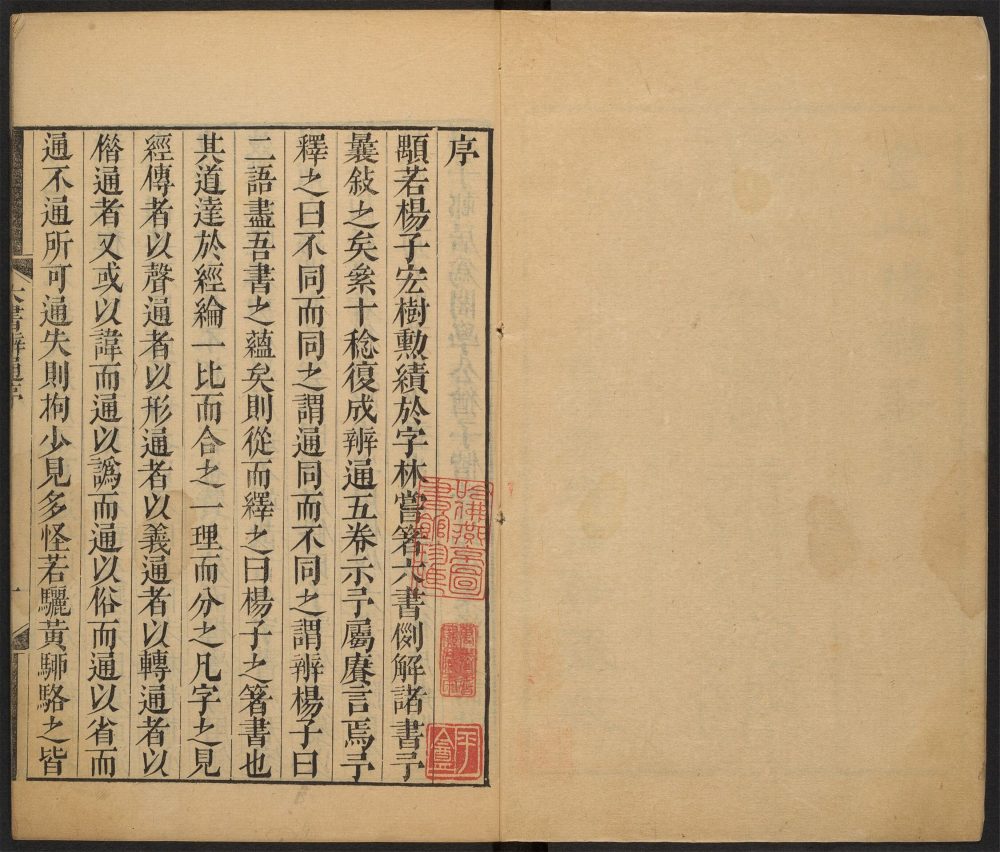 序
顒若楊子宏樹勳績於字林嘗箸六書例解諸書予
曩敍之矣絫十稔復成辨通五卷示予屬賡言焉予
釋之曰不同而同之謂通同而不同之謂辨楊子曰
二語盡吾書之蘊矣則從而釋之曰楊子之箸書也
其道達於經綸一比而合之一理而分之凡字之見
經傳者以聲通者以形通者以義通者以轉通者以
偕通者又或以諱而通以譌而通以俗而通以省而
通不通所可通失則拘少見多怪若驪黃駵駱之皆
六書辨通序
一
哈佛燕京圖書館珍藏
平盦